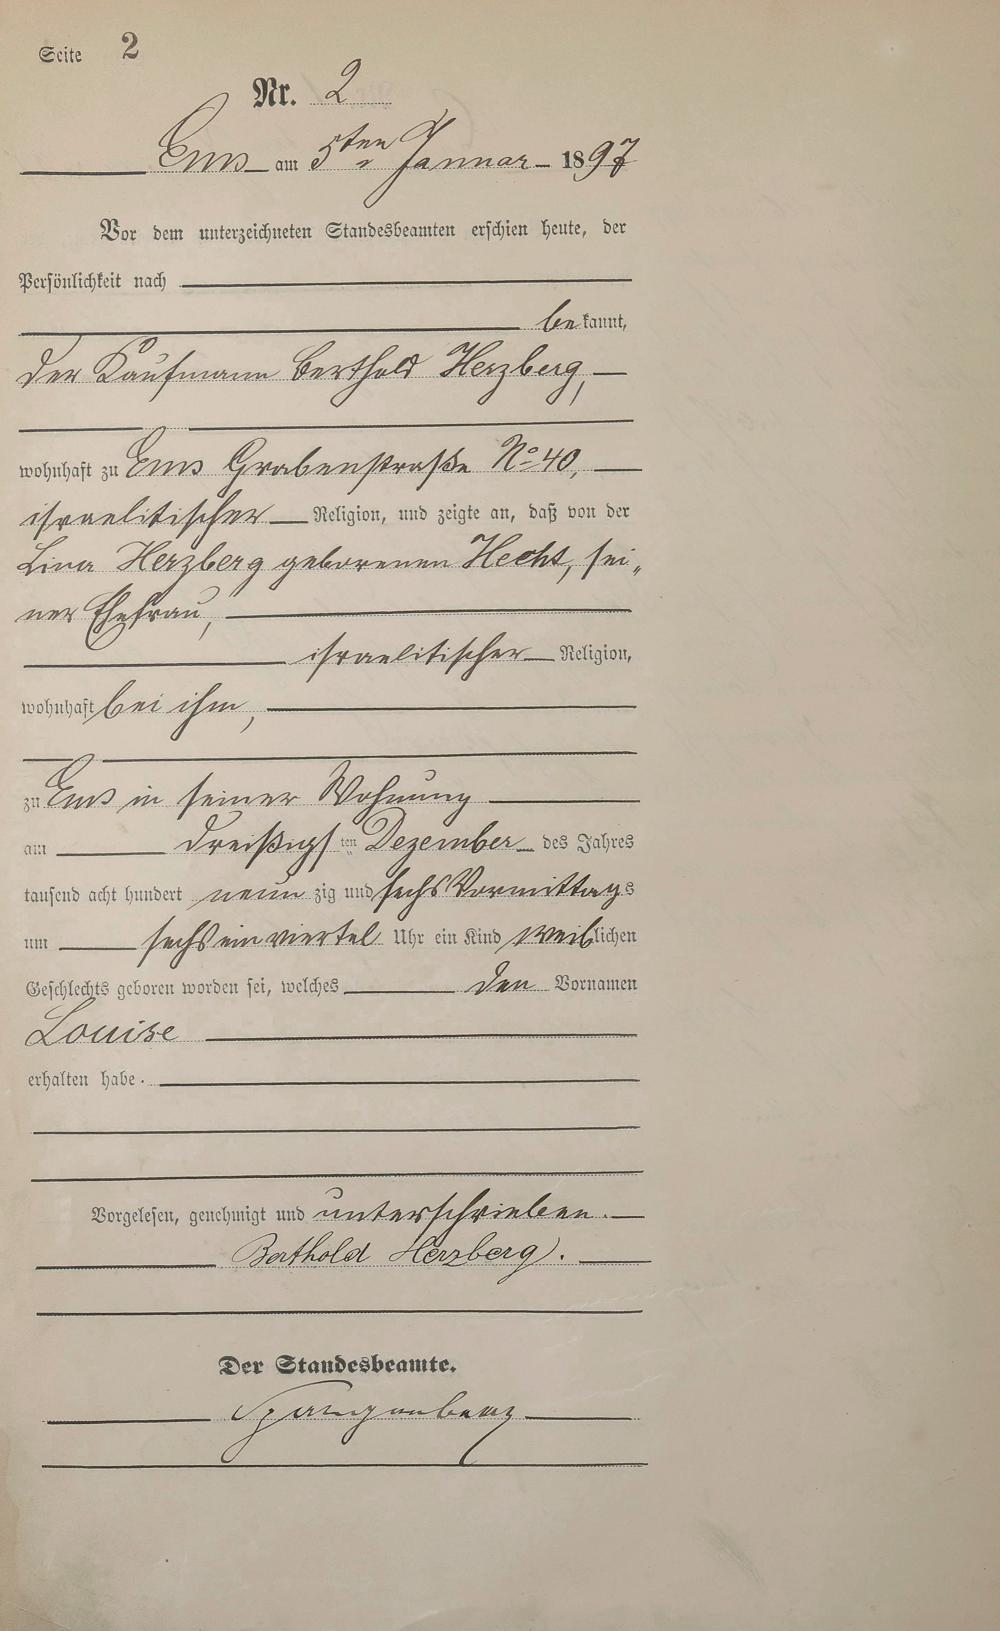 Seite 2
Nr. 2
Ems am 5ten Januar 1897
Vor dem unterzeichneten Standesbeamten erschien heute, der
Persönlichkeit nach
bekannt,
der Kaufmann Berthold Herzberg,
wohnhaft zu Ems Grabenstraße No 40,
israelitischer Religion, und zeigte an, daß von der
Lina Herzberg geborenen Hecht, sei„
ner Ehefrau,
israelitischer Religion,
wohnhaft bei ihm,
zu Ems in seiner Wohnung
am dreißigsten Dezember des Jahres
tausend acht hundert neun zig und sechs Vormittags
um sechs ein viertel Uhr ein Kind weiblichen
Geschlechts geboren worden sei, welches den Vornamen
Louise
erhalten habe.
Vorgelesen, genehmigt und unterschrieben.
Berthold Herzberg.
Der Standesbeamte.
Spangenberg